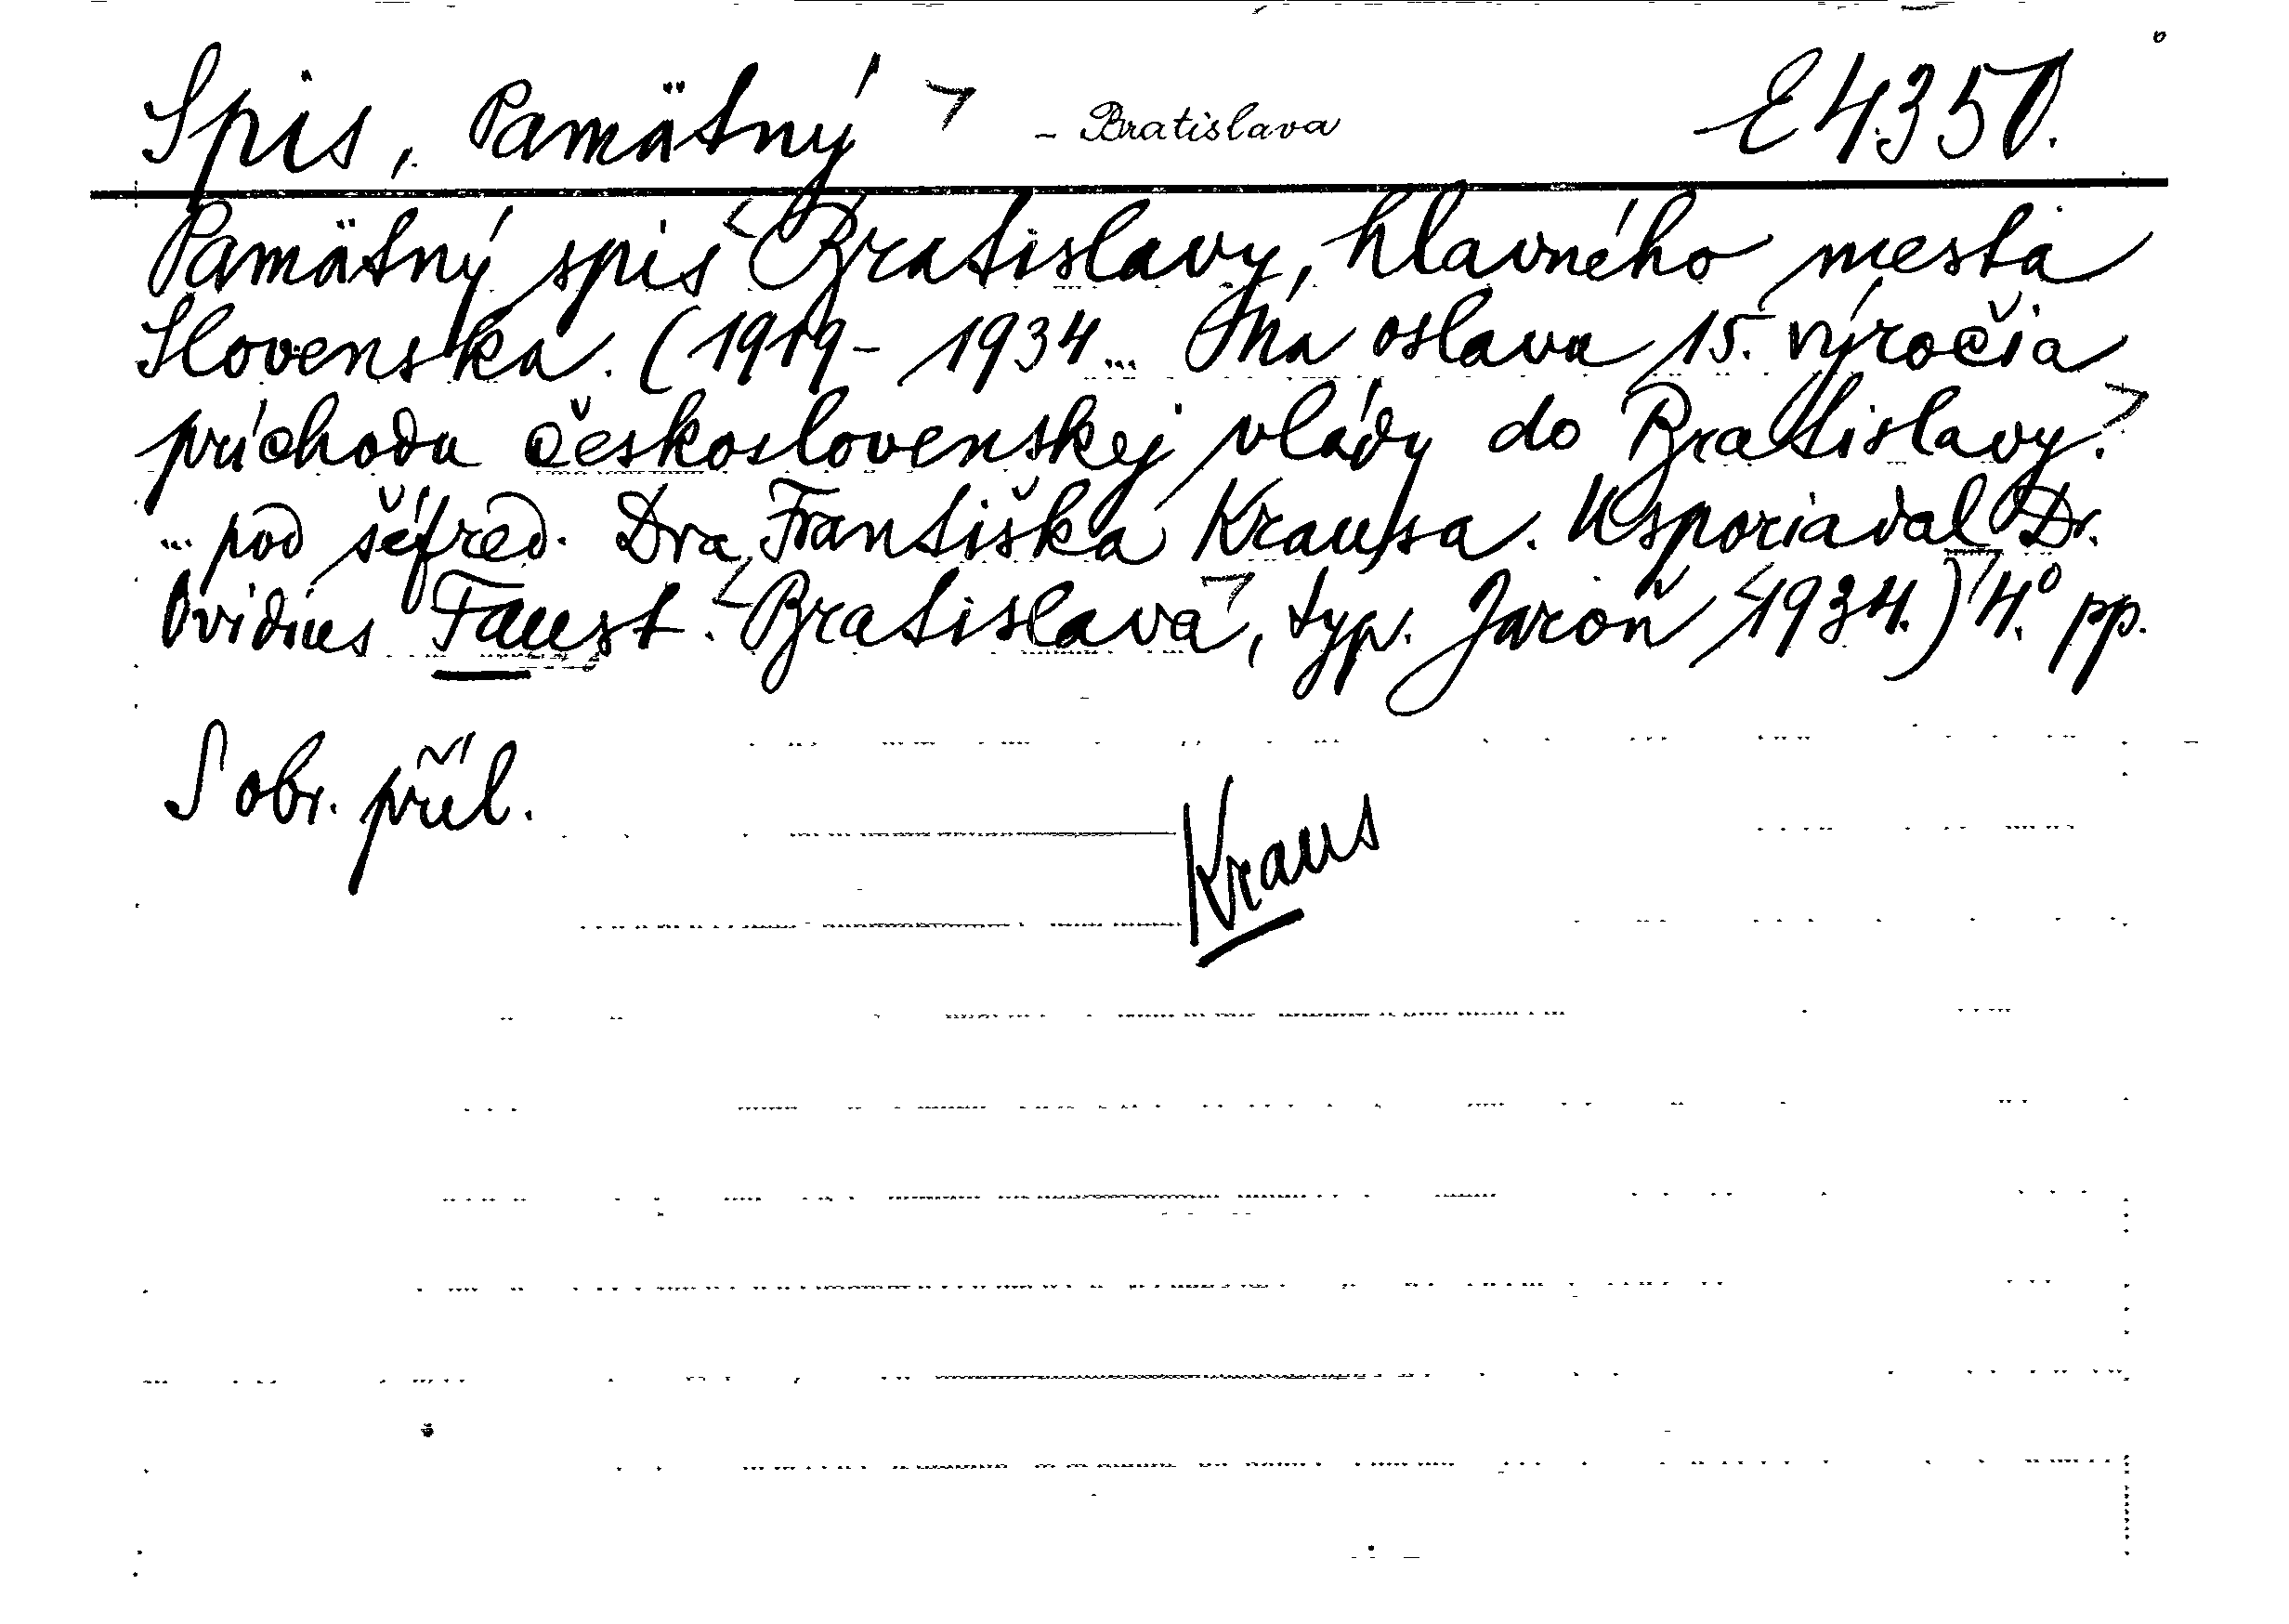 Spis, Pamätný - Bratislava E 4350.
Pamätný spis Bratislavy, hlavného mesta
Slovenska. (1919-1934... Na oslavu 15. výročia
príchodu československej vlády do Bratislavy.
... pod šéfred. Dra Františka Krausa. Usporiadal Dr.
Ovidius Faust. Bratislava, typ. Jaroň 1934.) 4.° pp.
S obr. příl.
Kraus